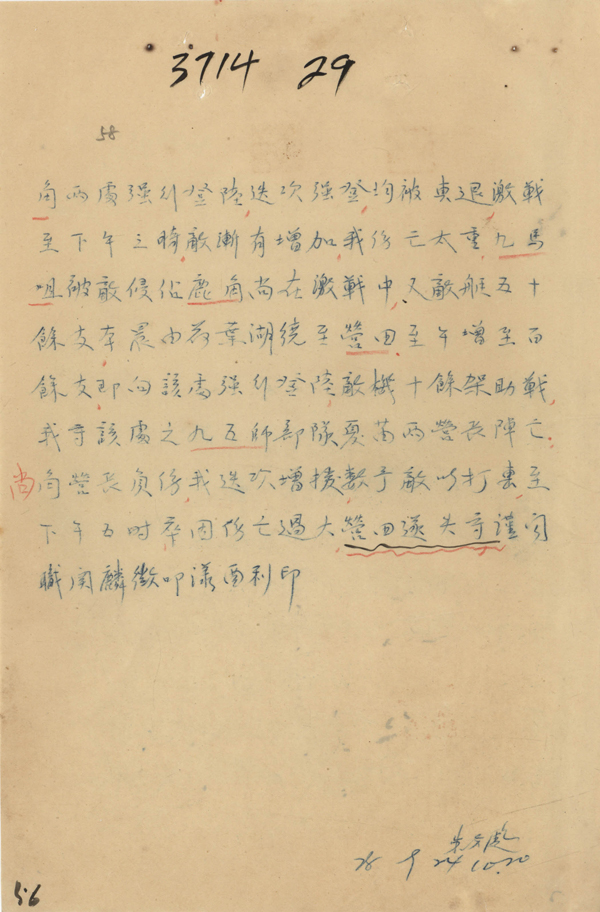 3714 29
58
角两處强行登陸迭次强登均被击退激戰
至下午三時敵漸有增加我伤亡太重九馬
咀被敵侵佔鹿角尚在激戰中又敵艇五十
餘支本晨由荷葉湖繞至營田至午增至百
餘支即向該處强行登陸敵機十餘架助戰
我守該處之九五師部隊夏苗两營長陣亡
尚 營長負伤我迭次增援數予敵以打击至
下午五时卒因伤亡過大營田遂失守謹聞
職関麟徵叩漾酉利印
24 10.20
56